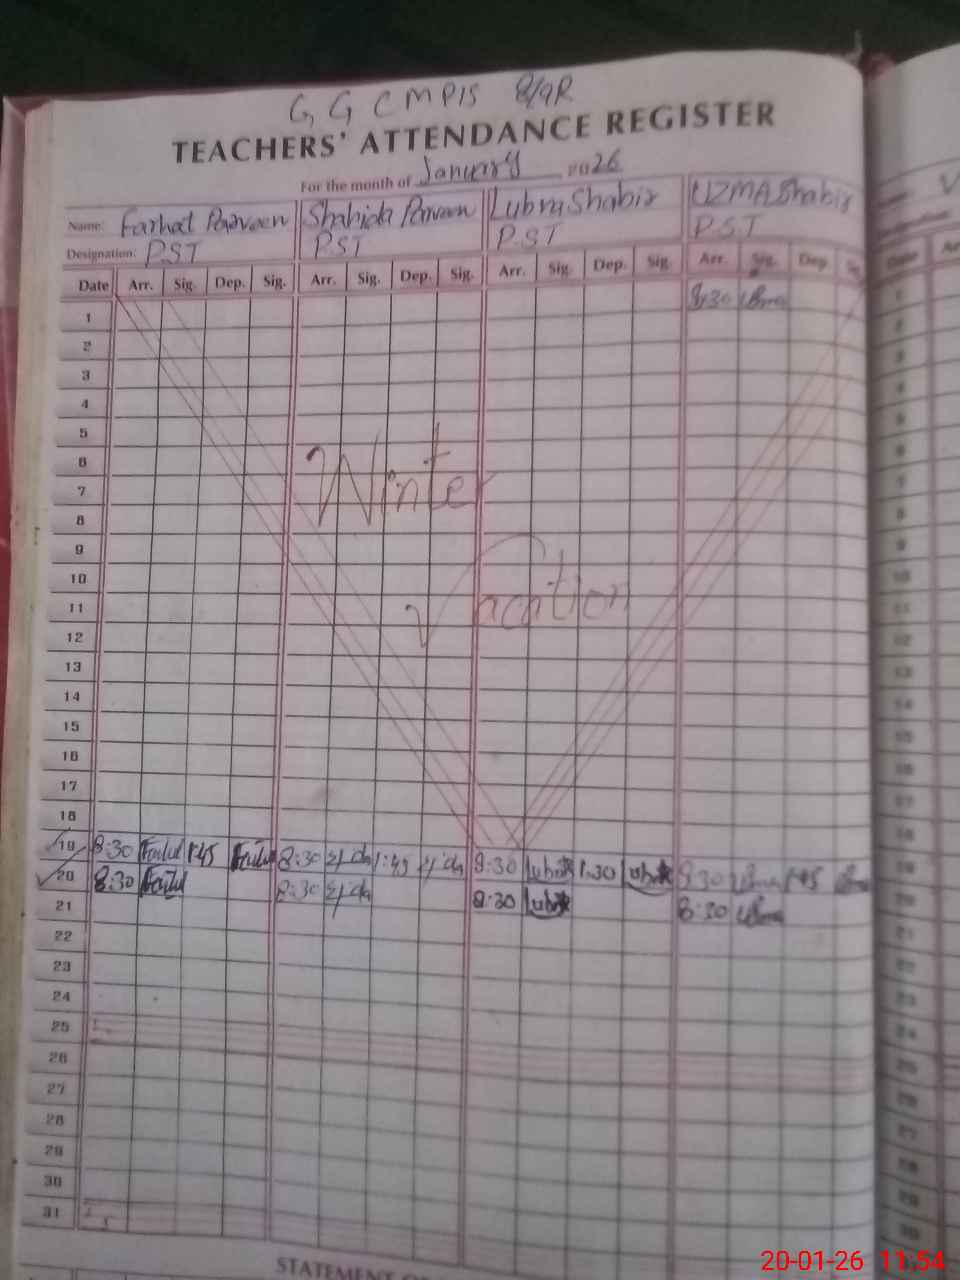 G G C M P I S 8/9R
TEACHERS' ATTENDANCE REGISTER
For the month of January 2026
Name: Farhat Parveen Shahida Parveen Lubna Shabir UZMA Shabir
Designation: P.S.T P.S.T P.S.T P.S.T
Date Arr. Sig. Dep. Sig. Arr. Sig. Dep. Sig. Arr. Sig. Dep. Sig. Arr. Sig. Dep.
1 8:30
2
3
4
5
6
Winter
7
8
9
10
Vacation
11
12
13
14
15
16
17
18
19 8:30 1:45 8:30 1:45 8:30 1:30 8:30 1:45
20 8:30 8:30 8:30 8:30
21
22
23
24
25
26
27
28
29
30
31
STATEMENT
20-01-26 11:54